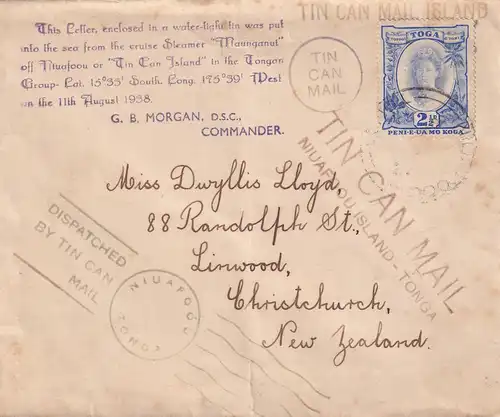 TIN CAN MAIL ISLAND
This Letter, enclosed in a water-tight tin was put
into the sea from the cruise Steamer "Maunganui"
off Niuafoou or "Tin Can Island" in the Tongan
Group- Lat. 15°35' South. Long. 175°39' West
on the 11th August 1938.
G. B. MORGAN, D.S.C.,
COMMANDER.
TIN
CAN
MAIL
TOGA
2½
PENI-E-UA MO KOGA
TIN CAN MAIL
NIUAFOOU ISLAND-TONGA
Miss Dwyllis Lloyd,
88 Randolph St.,
Linwood,
Christchurch,
New Zealand.
DISPATCHED
BY TIN CAN
MAIL
NIUAFOOU
TONGA